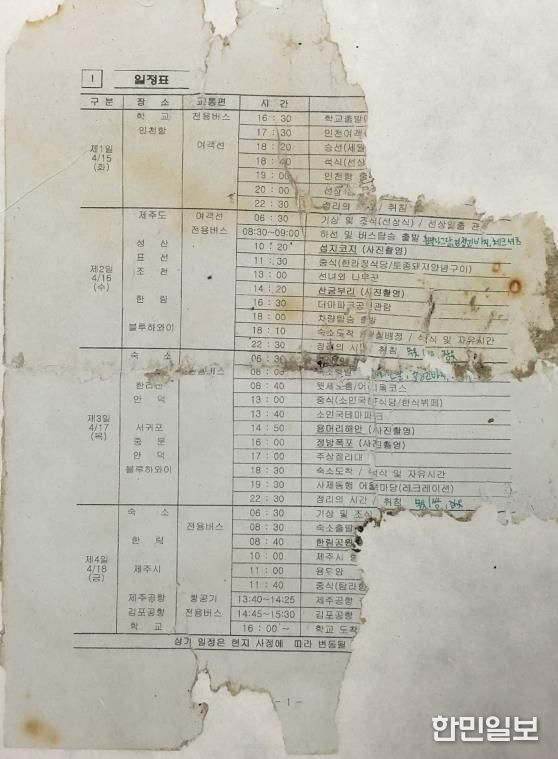 I 일정표
구 분 장 소 교통편 시 간
제1일 4/15 (화)
학 교 전용버스 16 : 30 학교출발(
인천항 17 : 30 인천여객
여객선 18 : 20 승선(세월
18 : 40 석식(선상
19 : 00 인천항 출
20 : 00 선상
22 : 30 정리의 / 취침
제2일 4/16 (수)
제주도 여객선 06 : 30 기상 및 조식(선상식) / 선상일출 관
전용버스 08:30~09:00 하선 및 버스탑승 출발
성 산 10 : 20 섭지코지 (사진촬영)
표 선 11 : 30 중식(한라정식당/토종돼지양념구이)
조 천 13 : 00 선녀와 나무꾼
14 : 20 산굼부리 (사진촬영)
한 림 16 : 30 더마파크공연관람
18 : 00 차량탑승 출발
블루하와이 18 : 10 숙소도착 / 실배정 / 석식 및 자유시간
22 : 30 정리의 시간 / 취침
제3일 4/17 (목)
숙 소 06 : 30
08 : 00 숙소출발
한라산 08 : 40 윗세오름/어리목코스
안 덕 13 : 00 중식(소인국 식당/한식뷔페)
13 : 40 소인국테마파크
서귀포 14 : 50 용머리해안 (사진촬영)
중 문 16 : 00 정방폭포 (사진촬영)
안 덕 17 : 00 주상절리대
블루하와이 18 : 30 숙소도착 / 석식 및 자유시간
19 : 30 사제동행 어울 마당(레크레이션)
22 : 30 정리의 시간 / 취침
제4일 4/18 (금)
숙 소 06 : 30 기상 및 조식
전용버스 08 : 30 숙소출발
한 림 08 : 40 한림공원
제주시 10 : 00 제주시
11 : 00 용두암
11 : 40 중식(탐라
제주공항 항공기 13:40~14:25 제주공항
김포공항 전용버스 14:45~15:30 김포공항
학 교 16 : 00 ~ 학교 도착
상기 일정은 현지 사정에 따라 변동될
- 1 -
한민일보